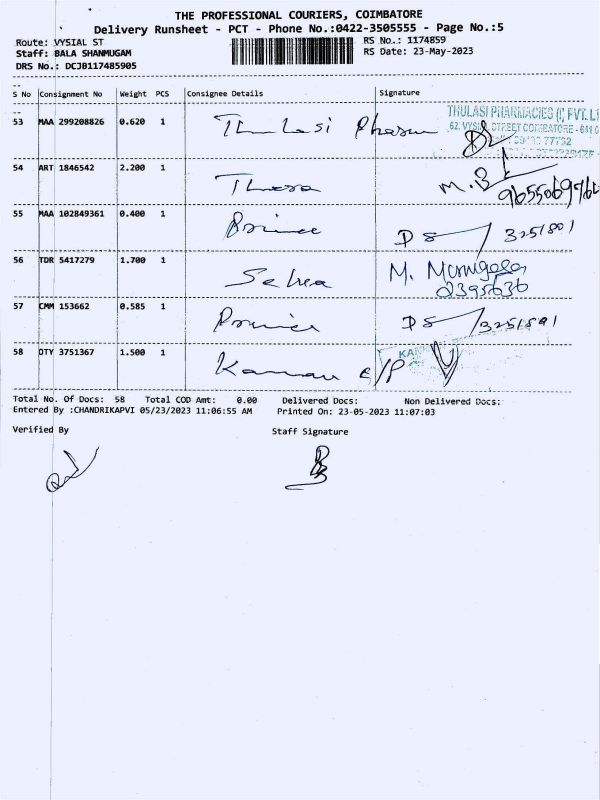 THE PROFESSIONAL COURIERS, COIMBATORE
Delivery Runsheet - PCT - Phone No.:0422-3505555 - Page No.:5
Route: VYSIAL ST RS No.: 1174859
Staff: BALA SHANMUGAM RS Date: 23-May-2023
DRS No.: DCJB117485905
S No Consignment No Weight PCS Consignee Details Signature
53 MAA 299208826 0.620 1 Thulasi Pharm
THULASI PHARMACIES (I) PVT. LT
62, VYSIAL STREET COIMBATORE - 641 0
54 ART 1846542 2.200 1 M.B
9655069766
55 MAA 102849361 0.400 1 Prince DS 3251801
56 TDR 5417279 1.700 1 M. Murugesan
57 CMM 153662 0.585 1 Prince DS 3251801
58 OTY 3751367 1.500 1 Kannan e/P KA
Total No. Of Docs: 58 Total COD Amt: 0.00 Delivered Docs: Non Delivered Docs:
Entered By :CHANDRIKAPVI 05/23/2023 11:06:55 AM Printed On: 23-05-2023 11:07:03
Verified By Staff Signature